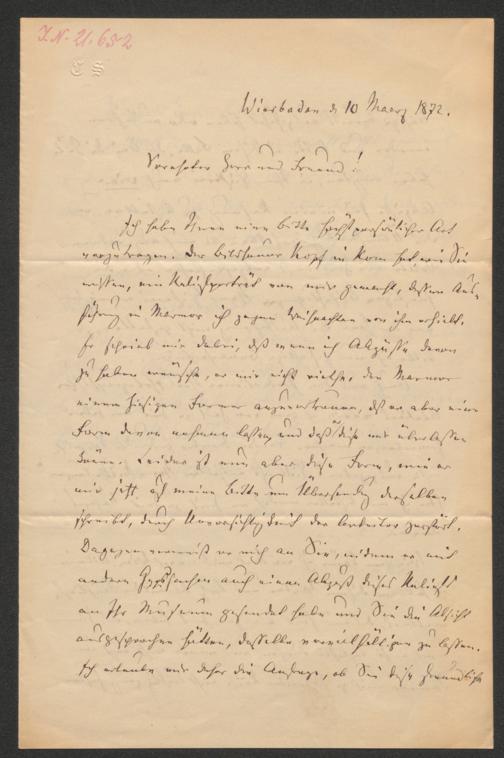 I.N. 21.652
C S
Wiesbaden d 10 Maerz 1872.
Verehrter Herr und Freund!
Ich habe Ihnen eine Bitte höchst persönlicher Art
vorzutragen. Der Bildhauer Kopf in Rom hat, wie Sie
wissen, ein Reliefporträt von mir gemacht, dessen Aus-
führung in Marmor ich gegen Weihnachten von ihm erhielt.
Er schrieb mir dabei, daß wenn ich Abgüsse davon
zu haben wünsche, er mir nicht riethe, den Marmor
einem hiesigen Former anzuvertrauen, daß er aber eine
Form davon nehmen lassen und diese mir überlassen
könne. Leider ist nun aber diese Form, wie er
mir jetzt auf meine Bitte um Übersendung derselben
schreibt, durch Unvorsichtigkeit der Arbeiter zerstört.
Dagegen verweist er mich an Sie, indem er mit
andern Gypssachen auch einen Abguß dieses Reliefs
an Ihr Museum gesendet habe und Sie die Absicht
ausgesprochen hätten, dasselbe vervielfältigen zu lassen.
Ich erlaube mir daher die Anfrage, ob Sie diese freundliche